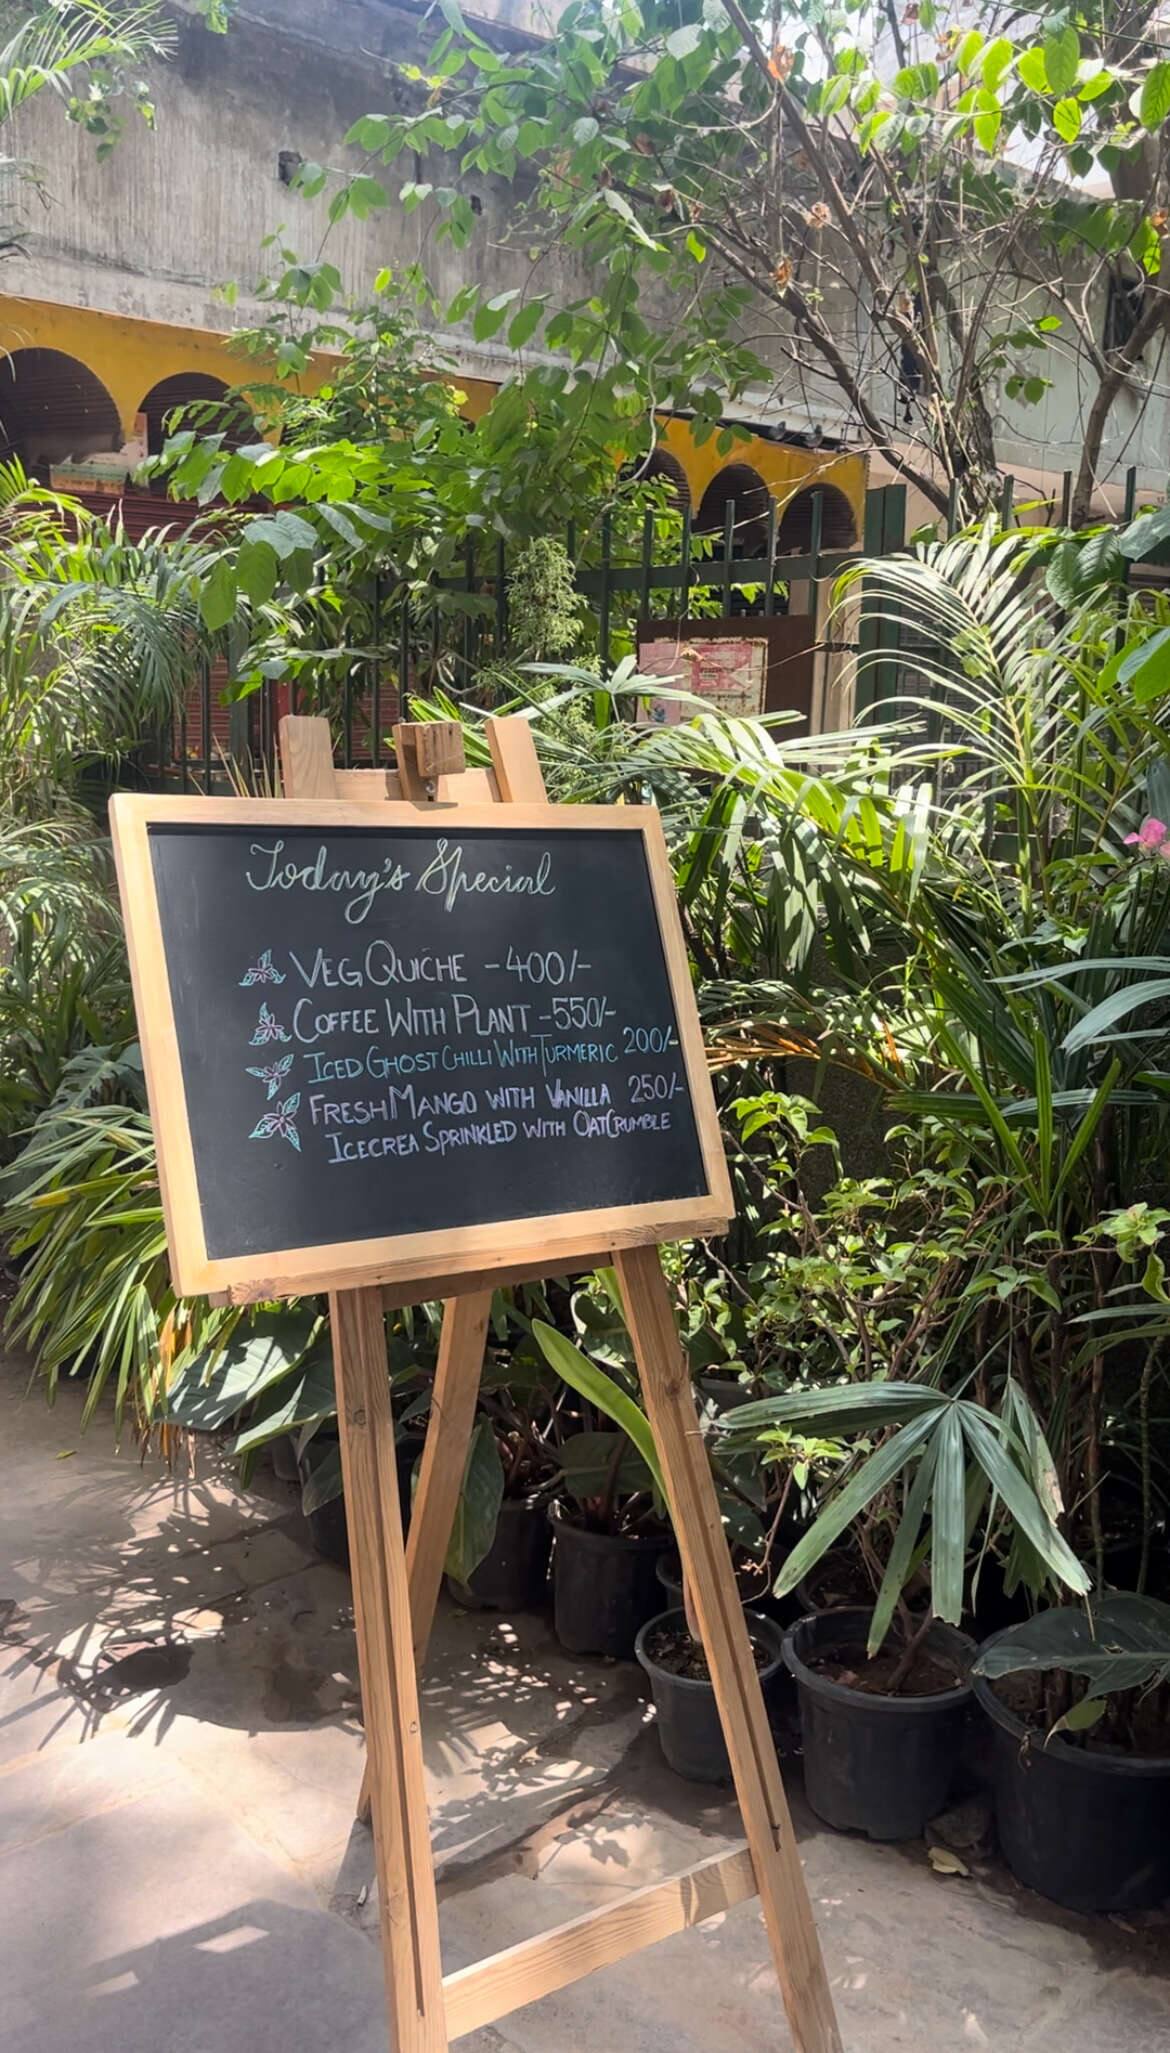 Today's Special
VEG QUICHE -400/-
COFFEE WITH PLANT -550/-
ICED GHOST CHILLI WITH TURMERIC 200/-
FRESH MANGO WITH VANILLA 250/-
ICECREA SPRINKLED WITH OAT CRUMBLE